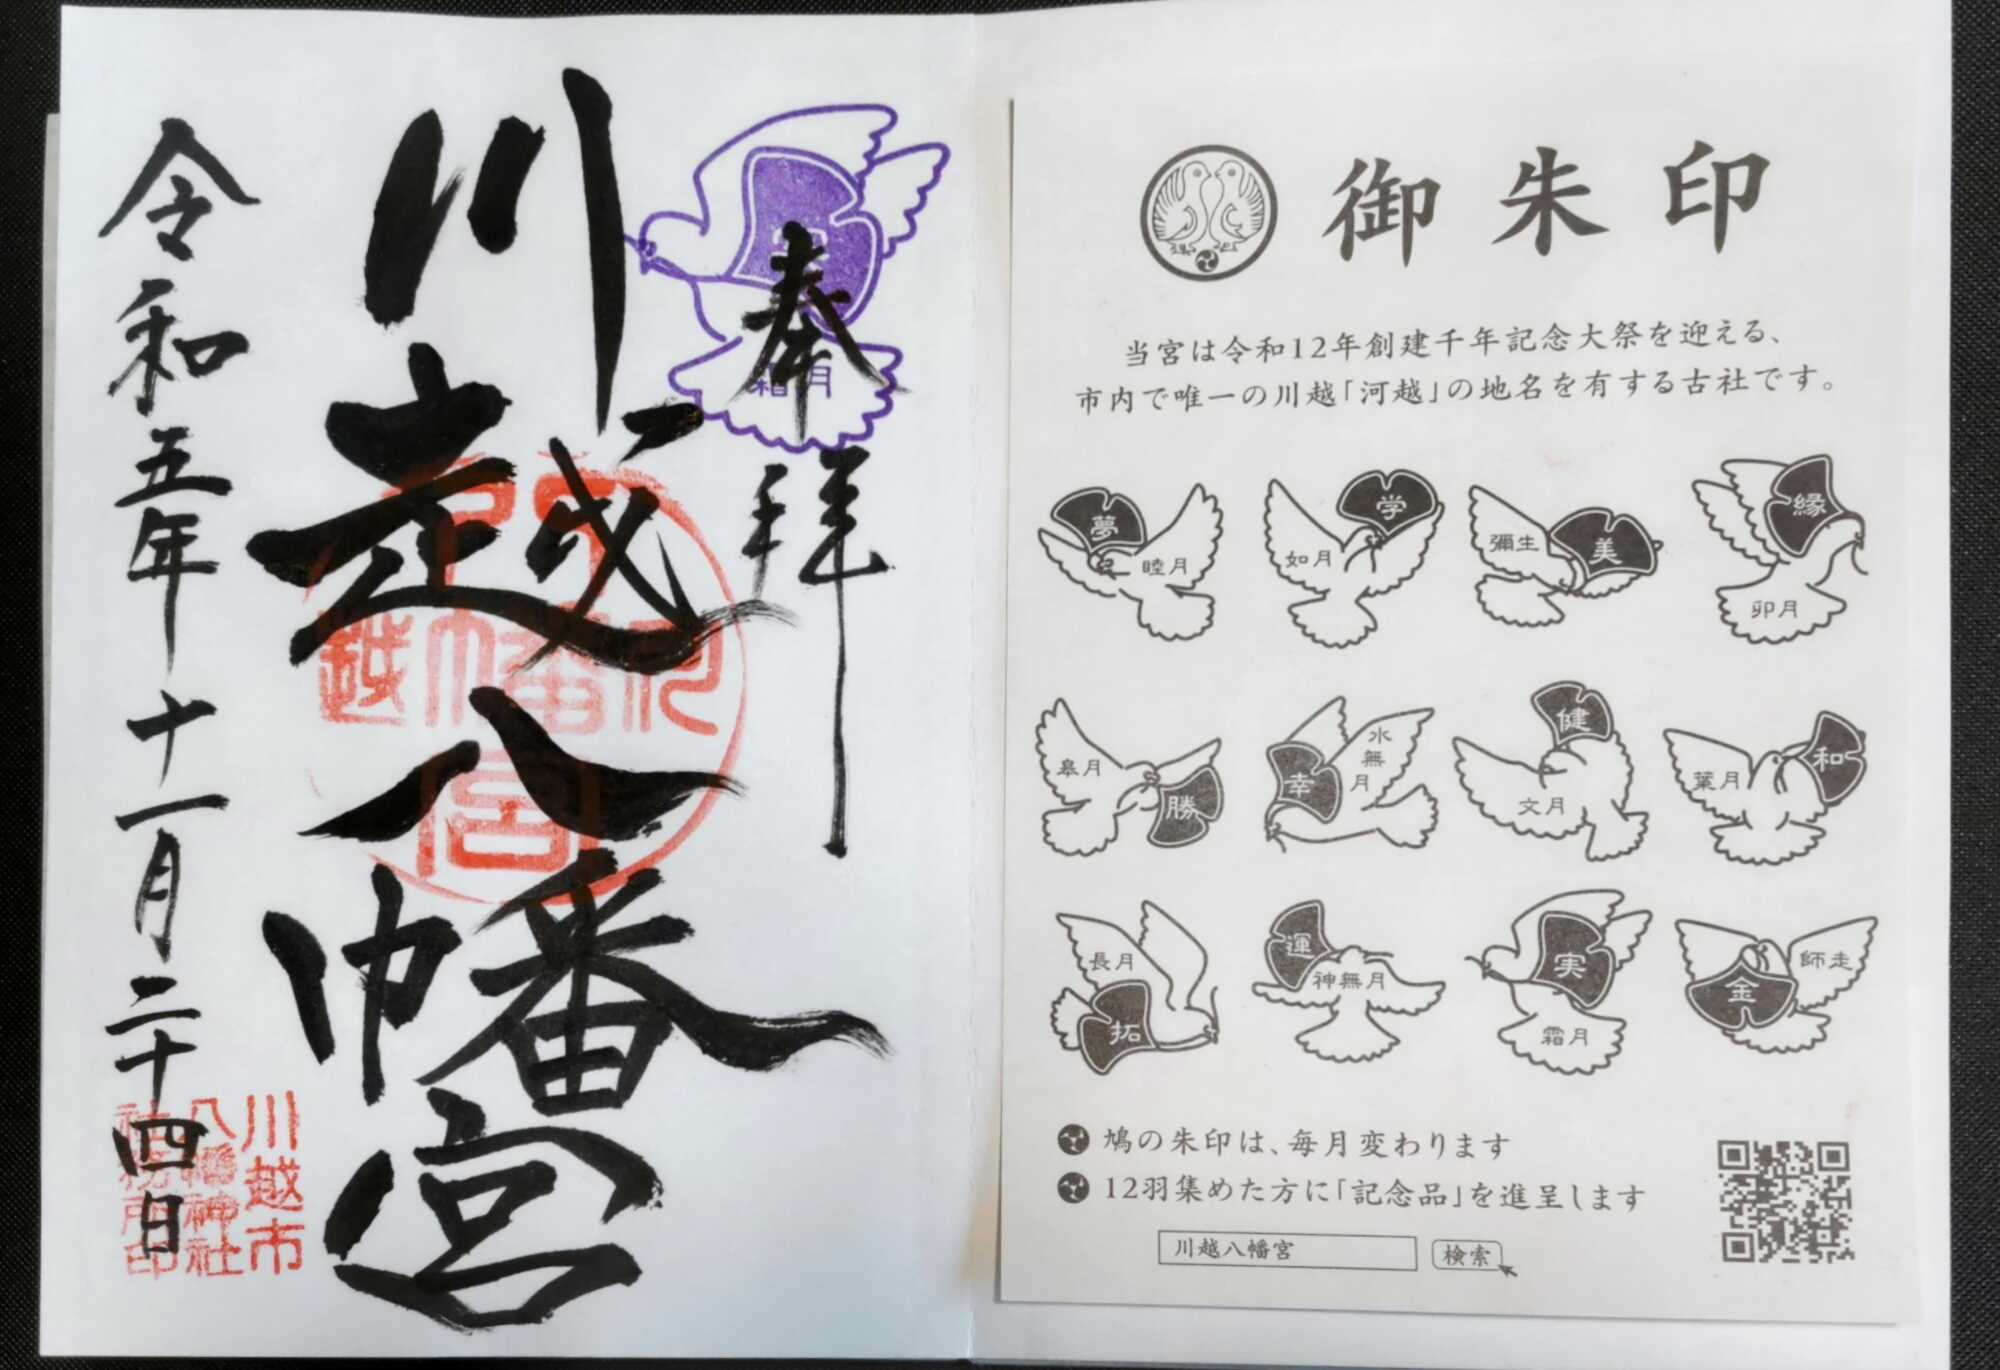 奉拝
川越八幡宮
令和五年十一月二十四日
霜月
川越市
八幡神社
社務所印
御朱印
当宮は令和12年創建千年記念大祭を迎える、
市内で唯一の川越「河越」の地名を有する古社です。
夢 睦月
学 如月
美 彌生
縁 卯月
勝 皐月
幸 水無月
健 文月
和 葉月
拓 長月
運 神無月
実 霜月
金 師走
鳩の朱印は、毎月変わります
12羽集めた方に「記念品」を進呈します
川越八幡宮 検索